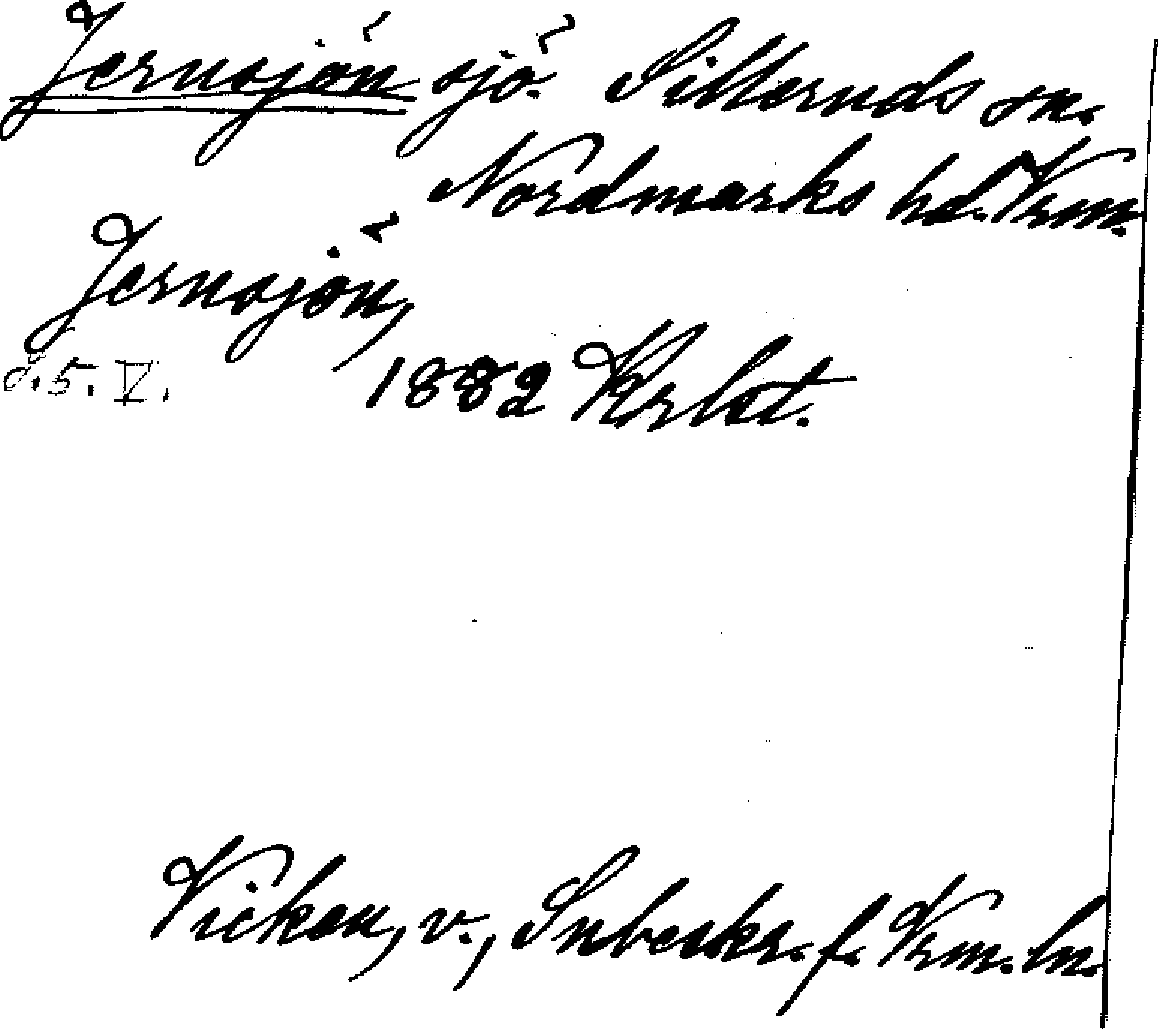 Jernsjön sjö. Silleruds sn.
Nordmarks hd. Vrm.
Jernsjön,
d. 5. V. 1882 Krbt.
Vickon, v., Snbeskr. f. Vrm. ln.